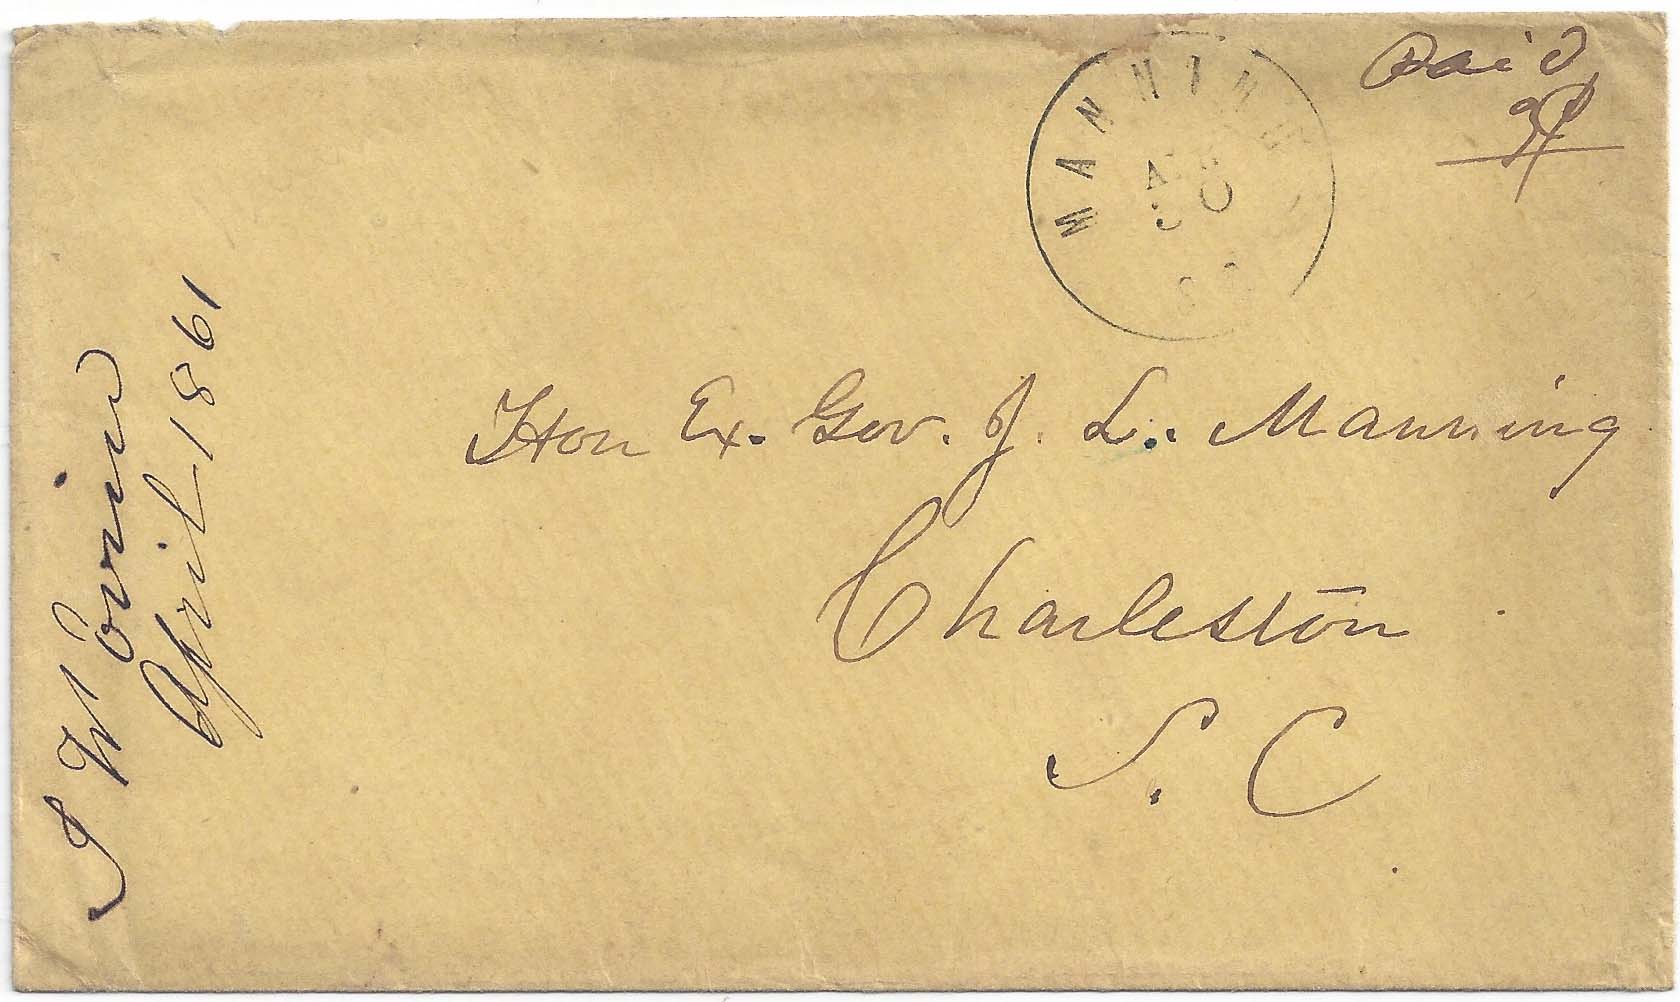 Paid
3¢
MANNING
S.C.
Hon Ex. Gov. J. L. Manning
Charleston
S. C
J W Corvin
April 1861